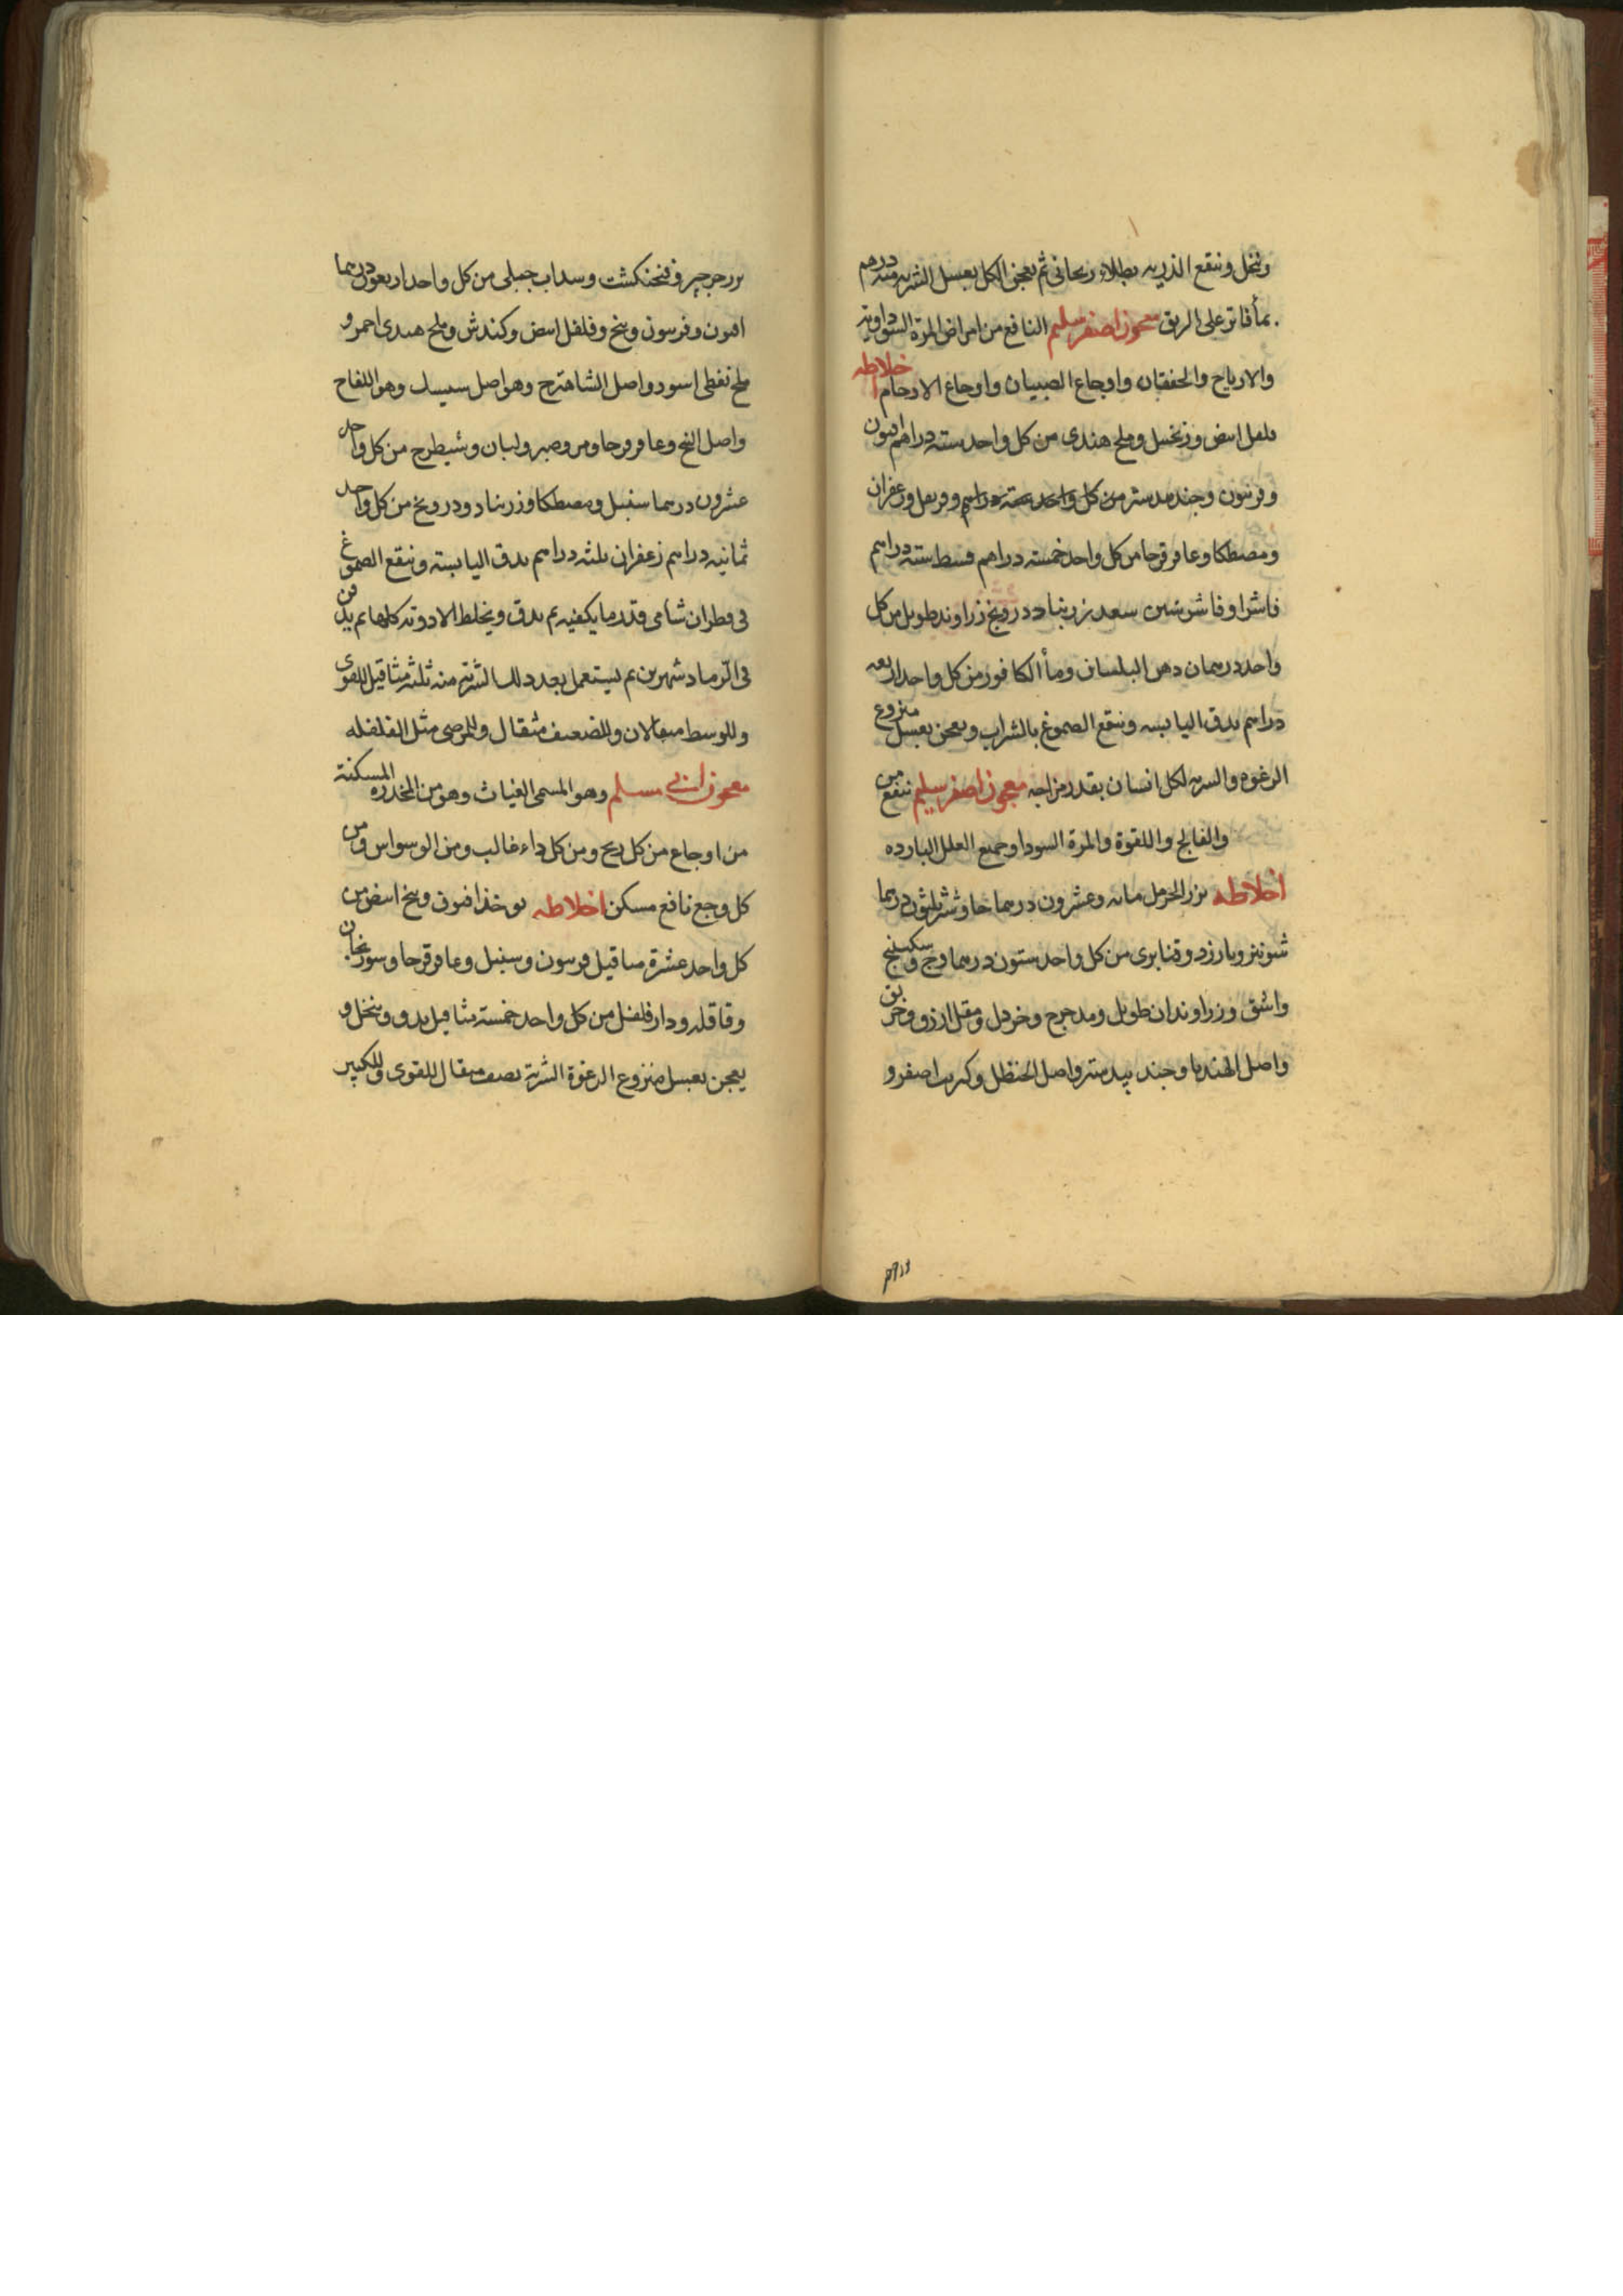 وتنخل وننقع الذريه بطلاء ريحاني ثم يعجن الكل بعسل الشربه منه درهم
بمأ فاتر على الريق معجون اصفر سليم النافع من امراض المرة السوداويه
والارياح والخفقان واوجاع الصبيان واوجاع الارحام اخلاطه
فلفل ابيض وزنجبيل وملح هندى من كل واحد سته دراهم افيون
وفربيون وجندبيدستر من كل واحد سته دراهم وقرنفل وزعفران
ومصطكا وعاقرقرحا من كل واحد خمسة دراهم قسط سته دراهم
فاشرا وفاشرشين سعد زرنباد درونج زراوند طويل من كل
واحد درهمان دهن البلسان ومأ الكافور من كل واحد اربعه
دراهم يدق اليابسه وينقع الصموغ بالشراب ويعجن بعسل منزوع
الرغوه والشربه لكل انسان بقدر مزاجه معجون اصفر سليم ينفع من
والفالج واللقوة والمرة السودا وجميع العلل البارده
اخلاطه بزر الحرمل مائه وعشرون درهما جاوشير ثلثون درهما
شونيز وبارزد وقنابرى من كل واحد ستون درهما وج وسكبينج
واشق وزراوندان طويل ومدحرج وخردل ومقل ازرق وخربق
واصل الهندبا وجند بيدستر واصل الحنظل وكبريت اصفر و
بزر جرجير وفنجنكشت وسداب جبلى من كل واحد اربعون درهما
افيون وفربيون وبنج وفلفل ابيض وكندش وملح هندى احمر و
ملح نفطى اسود واصل الشاهترج وهو اصل وهو اللفاح
واصل البنج وعاقرقرحا ومر وصبر ولبان وشيطرج من كل واحد
عشرون درهما سنبل ومصطكا وزرنباد ودرونج من كل واحد
ثمانيه دراهم زعفران ثلثه دراهم يدق اليابسة وينقع الصموغ
فى قطران شامى قدر ما يكفيه ثم يدق ويخلط الادوية كلها ثم يدفن
فى الرماد شهرين ثم يستعمل بعد ذلك الشربة منه ثلثه مثاقيل للقوى
وللوسط مثقالان وللضعيف مثقال وللمرضى مثل الفلفله
معجون ابى مسلم وهو المسمى الغياث وهو من المخدره المسكنة
من اوجاع من كل ريح ومن كل داء غالب ومن الوسواس ومن
كل وجع نافع مسكن اخلاطه يوخذ افيون وبنج ابيض من
كل واحد عشرة مثاقيل فربيون وسنبل وعاقرقرحا وسورنجان
وقاقله ودارفلفل من كل واحد خمسة مثاقيل يدق وينخل و
يعجن بعسل منزوع الرغوة الشربة نصف مثقال للقوى وللكبير